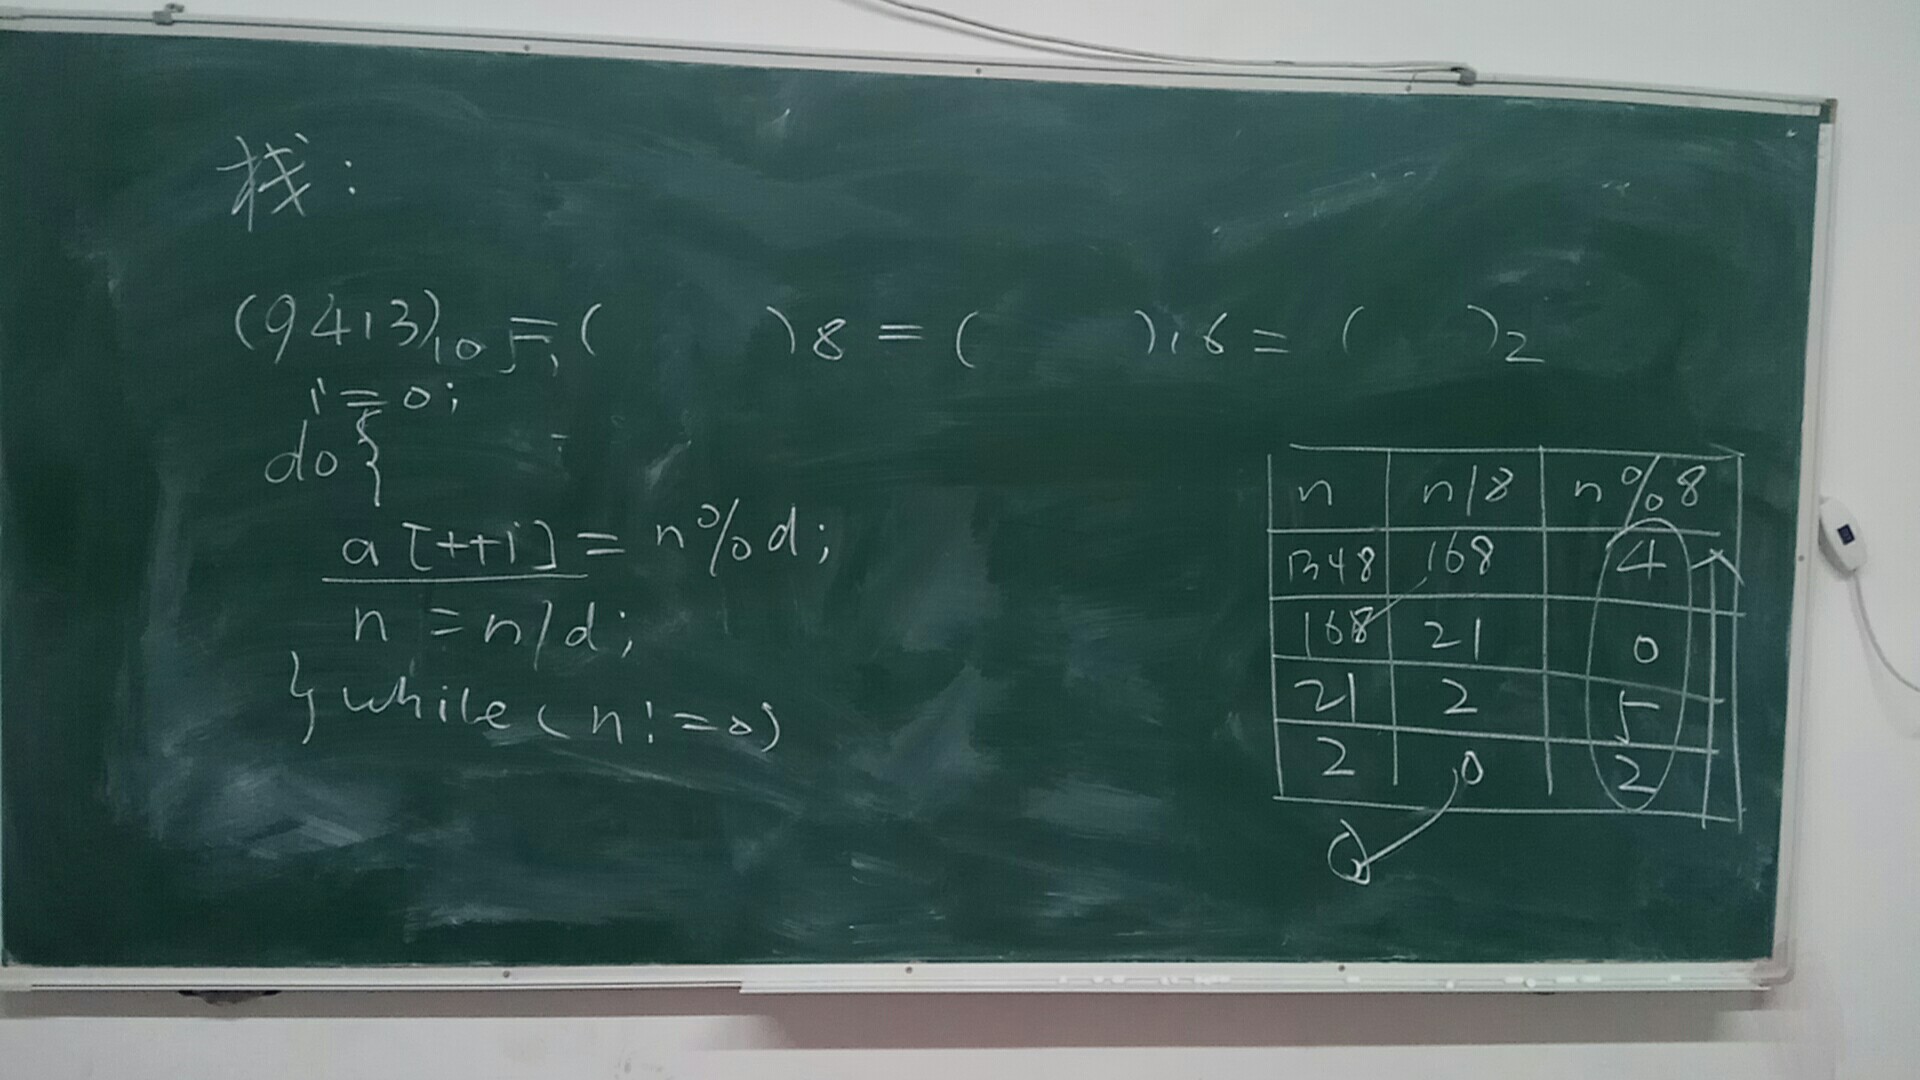 栈:
(9413)10 = ( )8 = ( )16 = ( )2
i=0;
do{
a[++i] = n%d;
n = n/d;
}while(n!=0)
n n/8 n%8
1348 168 4
168 21 0
21 2 5
2 0 2